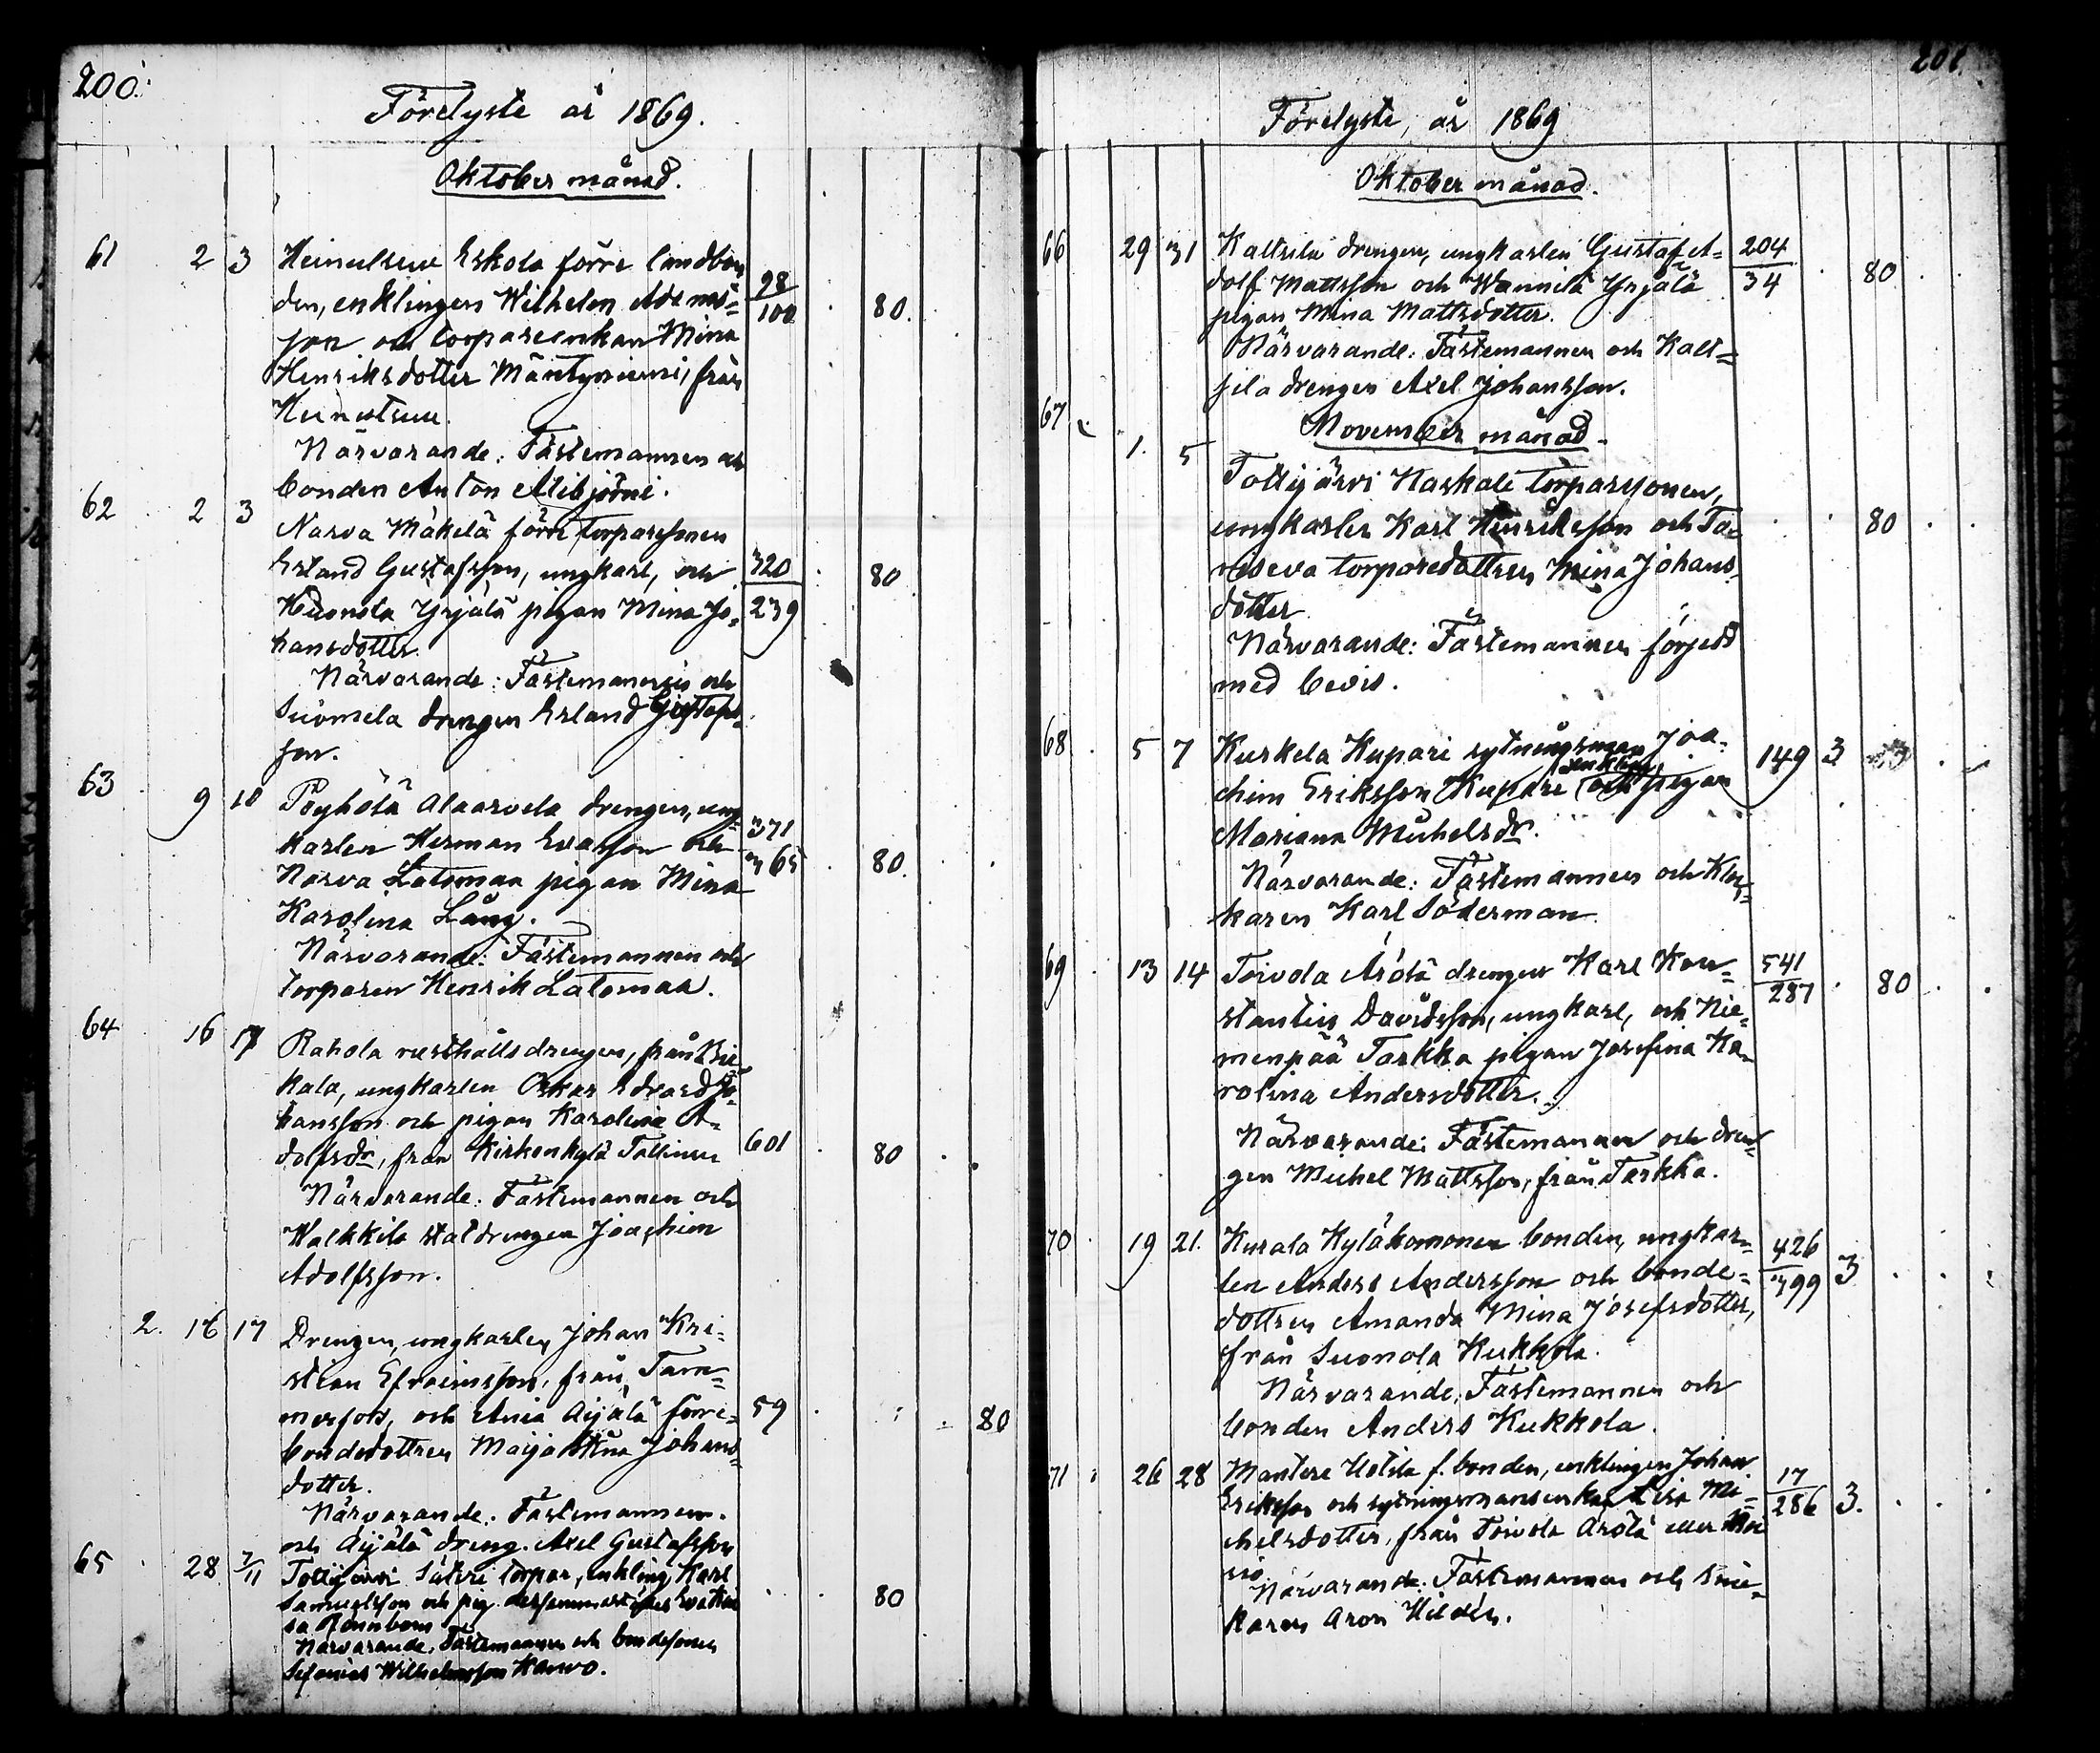 200.
Förelyste år 1869.
Oktober månad.
61 2 3 Heinulseue Eskola förre landbon
den, enklingen Wilhelm Adams= 98
son och torpareenkan Mina 100 80.
Henriksdotter Mäntyniemi, från
Närvarande: Fästemannen och
bonden Anton Alibjörni.
62 2 3 Narva Mäkelä förre torparesonen
Erland Gustafsson, ungkarl, och 320 80
Yrjälä pigan Mina Jo= 239
hansdotter.
Närvarande: Fästemannen och
Suomela drengen Erland Gustafs=
son.
63 9 10 Pöyhölä Alaarvela drengen, ung=
karlen Herman Evasson och 371
Narva Latomaa pigan Mina 365 80.
Karolina Lång.
Närvarande: Fästemannen och
torparen Henrik Latomaa.
64 16 17 Rahola rusthålls drengen, från
kala, ungkarlen Oskar Edvard Jo=
hansson och pigan Karolina A=
dolfsdr, från Kirkonkylä 601 80
Närvarande: Fästemannen och
Walkkila staldrengen Joachim
Adolfsson.
2. 16 17 Drengen, ungkarlen Johan Kri=
stian Efraimsson, från Tam=
merfors, och Ania Äijälä förre= 59 80
bondedottren Maija Stina Johans=
dotter.
Närvarande: Fästemannen
och Äijälä dreng. Axel Gustafsson
65 28 7/11 Tottijärvi Säteri torpar, enkling Karl
Samuelsson och pig. dersammastädes Eva 80
sa Rönnbom
Närvarande: Fästemannen och bondesonen
Wilhelmsson
201.
Förelyste, år 1869
Oktober månad.
66 29 31 Kaltsila drengen, ungkarlen Gustaf A= 204
dolf Mattsson och Wannila Yrjälä 34 80
pigan Mina Mattsdotter.
Närvarande: Fästemannen och Kalt=
sila drengen Axel Johansson.
67
November månad.
1. 5 Tottijärvi Haskale torparsonen,
ungkarlen Karl Henriksson och Ta= 80
torparedottren Mina Johans=
dotter
Närvarande: Fästemannen försedd
med bevis.
68 5 7 Kurkela Kupari sytningsman Joa= 149 3
enkling,
chim Eriksson Kupari och pigan
Mariana Michelsdr.
Närvarande: Fästemannen och Kloc=
karen Karl Söderman
69 13 14 Toivola Arölä drengen Karl Kon= 541
stantin Davidsson, ungkarl, och Nie= 287 80
menpää Tarkka pigan Josefina Ka=
rolina Andersdotter.
Närvarande: Fästemannen och dren=
gen Michel Mattsson, från Tarkka.
70 19 21. Kurala Kylähomonen bonden, ungkar= 426
len Anders Andersson och bonde= 399 3
dottren Amanda Mina Josefsdotter,
från Suonola Kukkola.
Närvarande: Fästemannen och
bonden Anders Kukkola.
71 26 28 Mantere Uotila f. bonden, enklingen Johan 17
Eriksson och sytningsmansenkan Lisa Mi= 286 3.
chelsdotter, från Toivola Arölä eller
Närvarande: Fästemannen och
karen Aron Hildén.